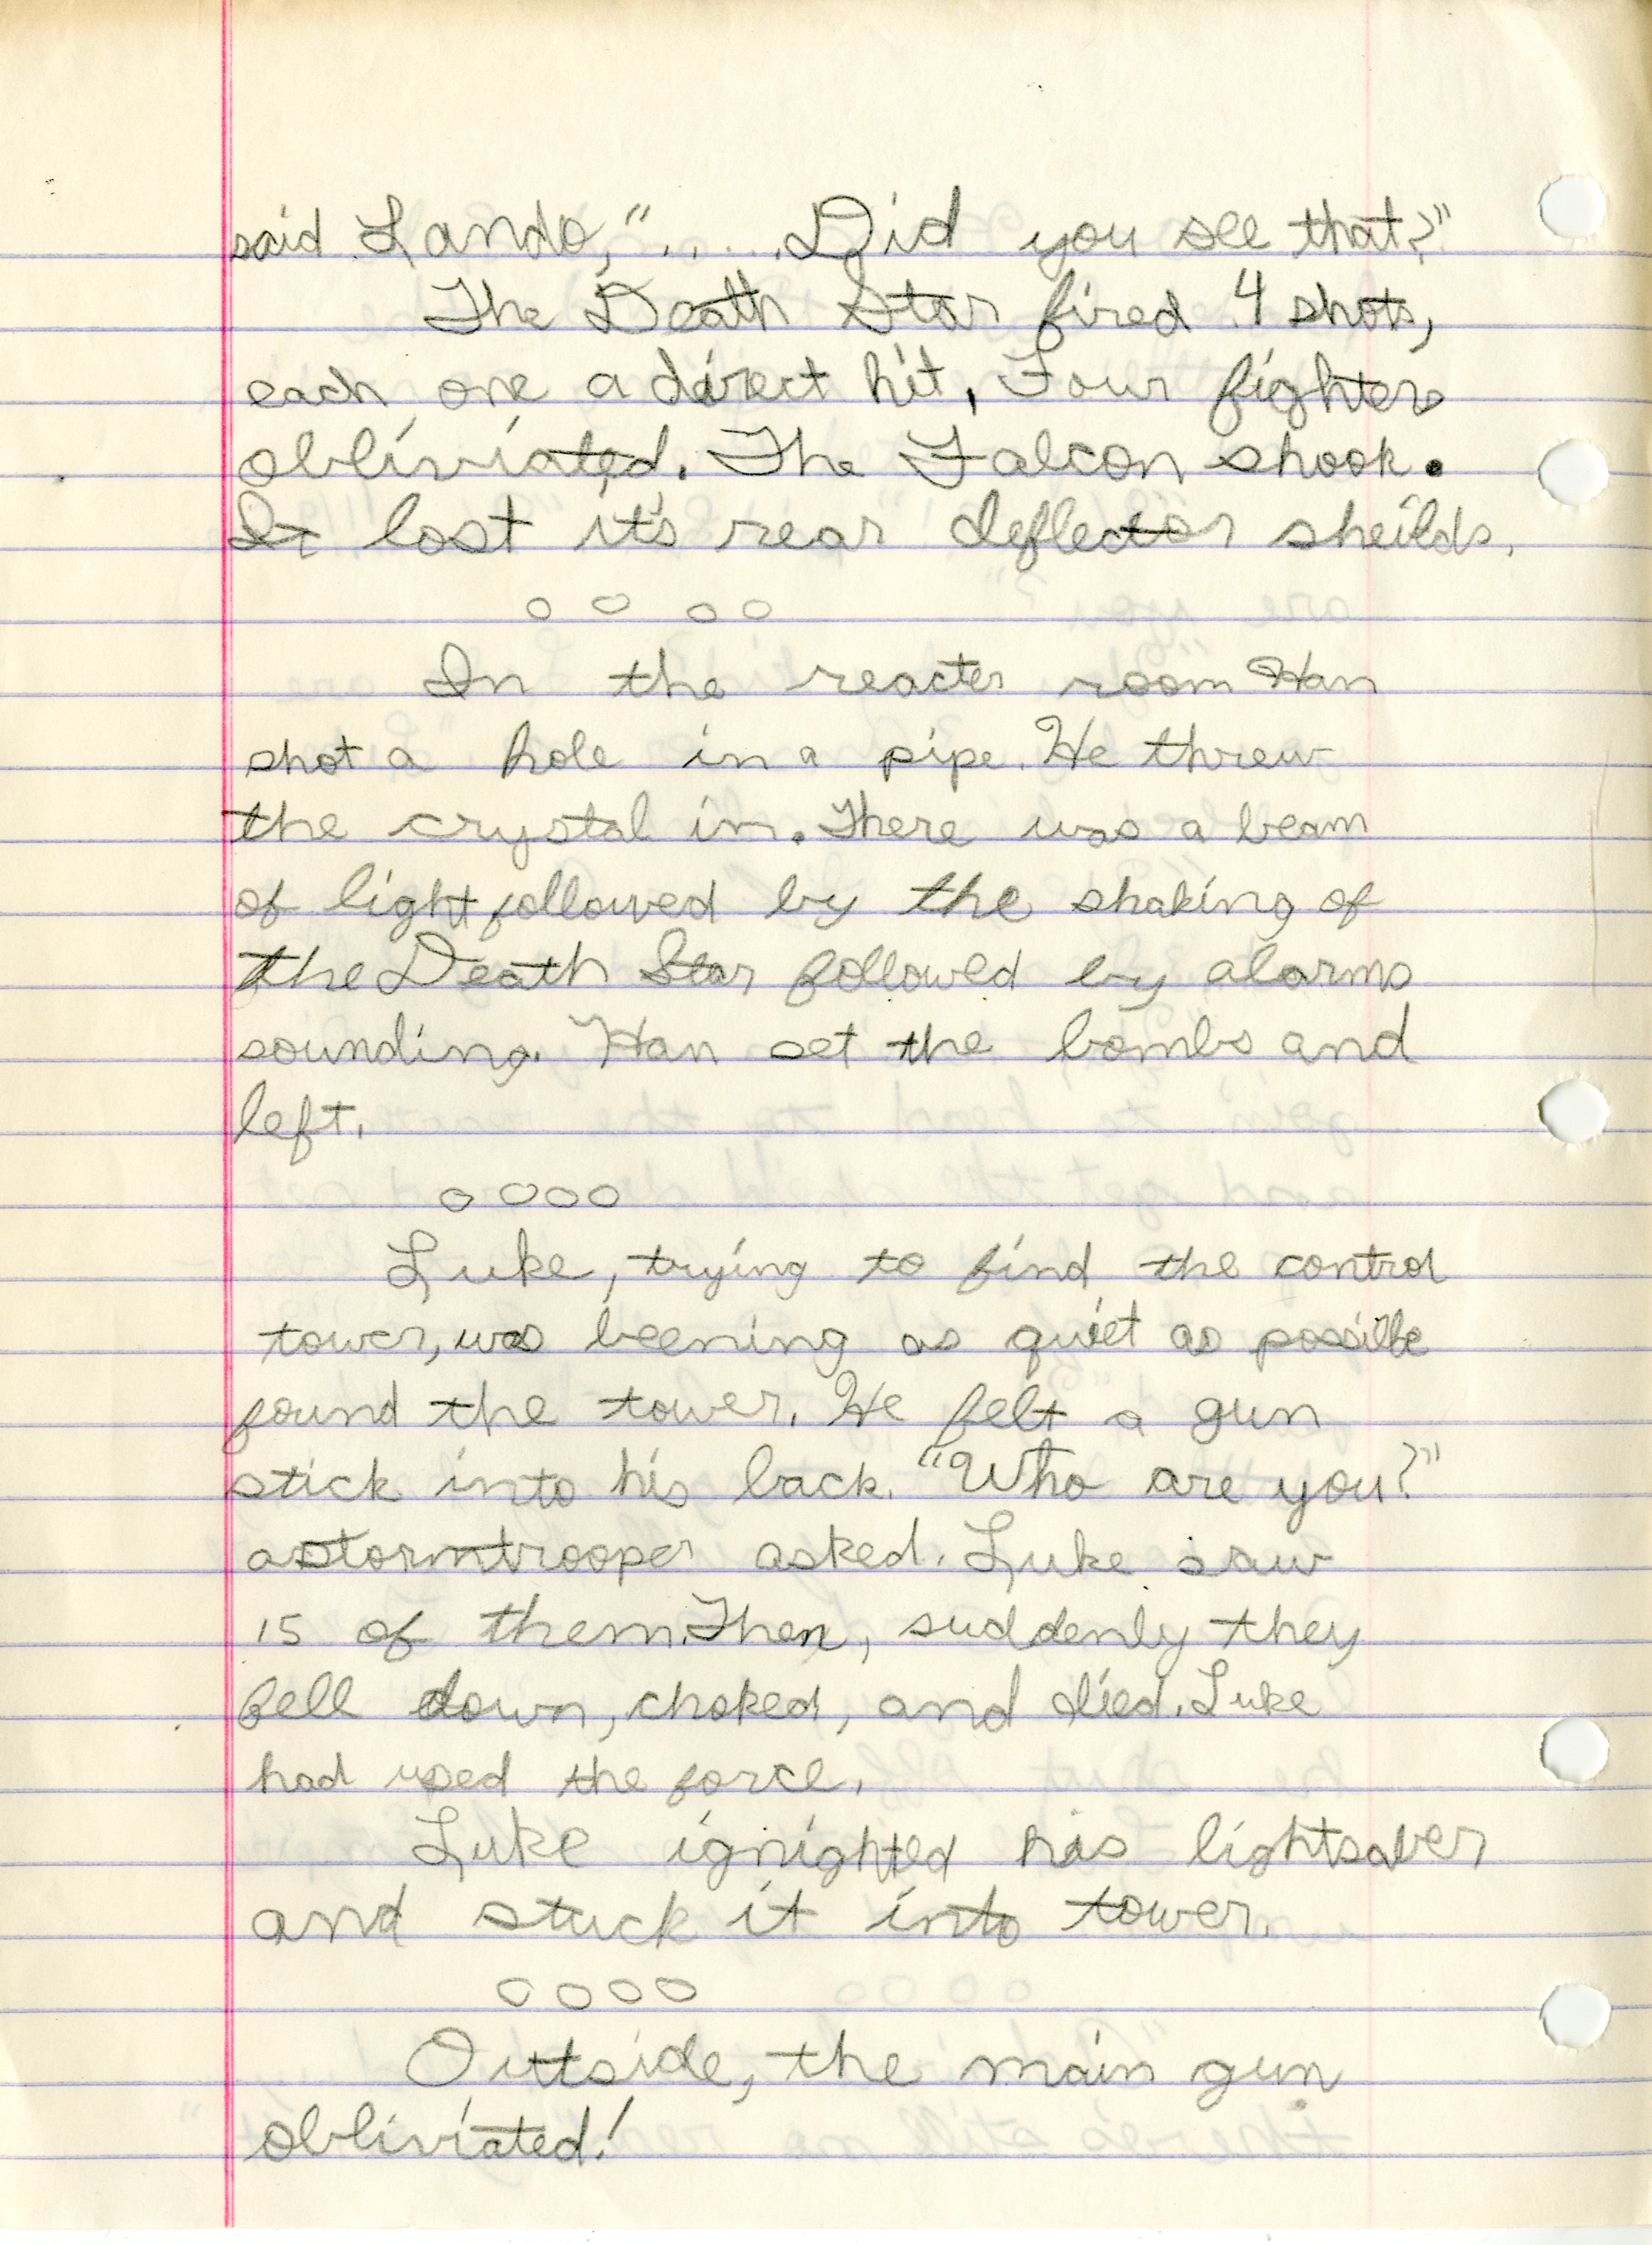 said Lando, ". . . . . Did you see that?"
The Death Star fired 4 shots,
each one a direct hit. Four fighters
obliviated. The Falcon shook.
It lost it's rear deflector sheilds.
o o o o
In the reacter room Han
shot a hole in a pipe. He threw
the crystal in. There was a beam
of light followed by the shaking of
the Death Star followed by alarms
sounding. Han set the bombs and
left.
o o o o
Luke, trying to find the control
tower, was beening as quiet as possible
found the tower. He felt a gun
stick into his back. "Who are you?"
a stormtrooper asked. Luke saw
15 of them. Then, suddenly they
fell down, choked, and died. Luke
had used the force.
Luke ignighted his lightsaber
and stuck it into tower.
o o o o
Outside, the main gun
obliviated!